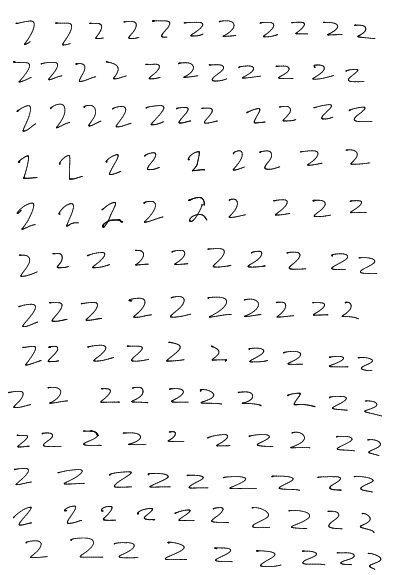 2 2 2 2 2 2 2 2 2 2 2
2 2 2 2 2 2 2 2 2 2 2 2
2 2 2 2 2 2 2 2 2 2 2
2 2 2 2 2 2 2 2 2
2 2 2 2 2 2 2 2 2
2 2 2 2 2 2 2 2 2 2
2 2 2 2 2 2 2 2 2 2 2
2 2 2 2 2 2 2 2 2 2
2 2 2 2 2 2 2 2 2 2
2 2 2 2 2 2 2 2 2 2
2 2 2 2 2 2 2 2 2
2 2 2 2 2 2 2 2 2 2 2
2 2 2 2 2 2 2 2 2